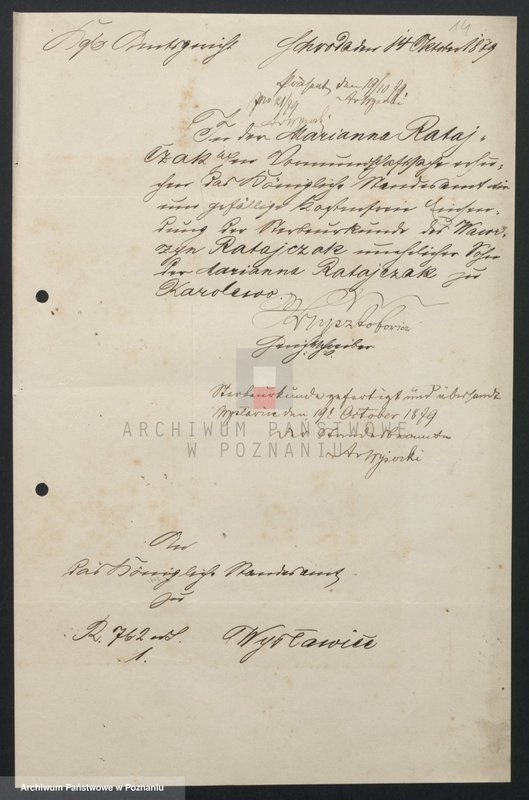 14
Kgl. Amtsgericht Schroda den 14 Oktober 1879
Präsent. den 19/10 79
In der Marianna Rataj-
czak'schen Vormundschaftssache ersu-
chen das Königliche Standesamt wir
um gefällige kostenfreie Einsen-
dung der Sterbeurkunde des Wawr-
zyn Ratajczak unehelicher Sohn
der Marianna Ratajczak zu
Karolewo.
Gerichtsschreiber
Sterbeurkunde gefertigt und übersandt
den 19t October 1879
Der Standesbeamte
ARCHIWUM PAŃSTWOWE
W POZNANIU
An
das Königliche Standesamt
zu
R. 762
1.
Wysławice
Archiwum Państwowe w Poznaniu